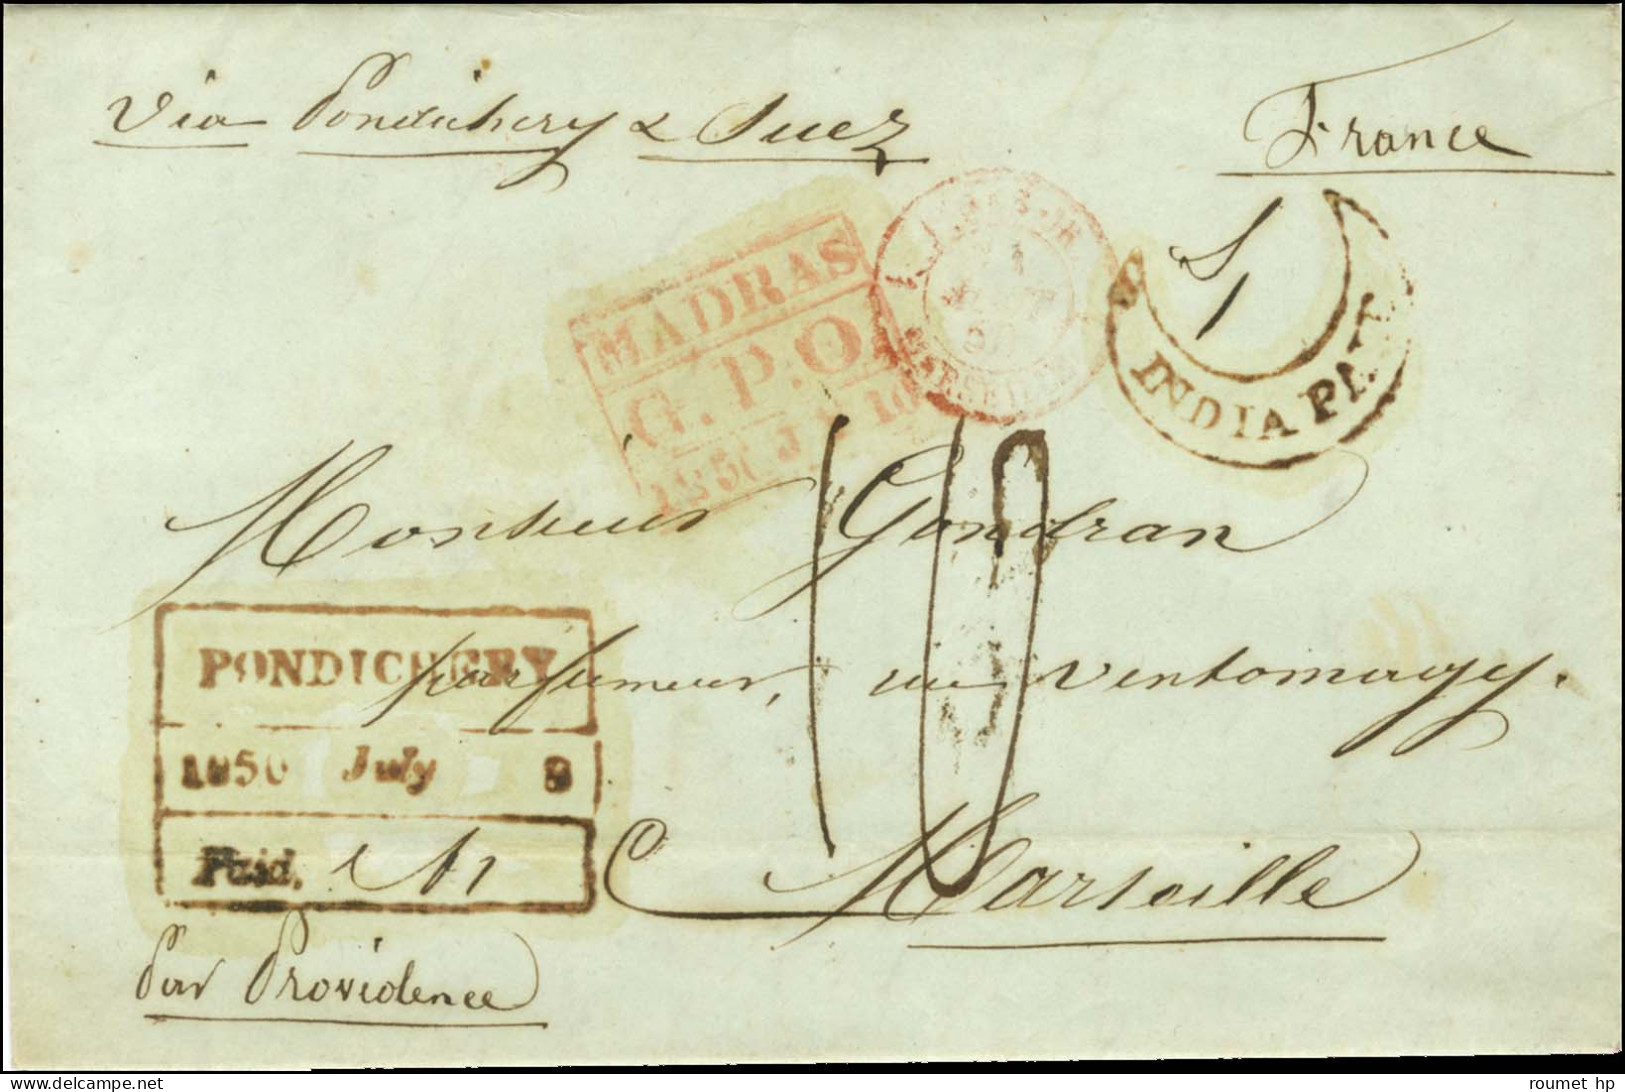 Via Pondichery & Suez
France
MADRAS
G.P.O
1850 J 10
INDIA PAID
Monsieur Gondran
parfumeur, rue Ventomagy.
Marseille
10
PONDICHERY
1850 July 9
Paid.
Par Providence
roumet hp